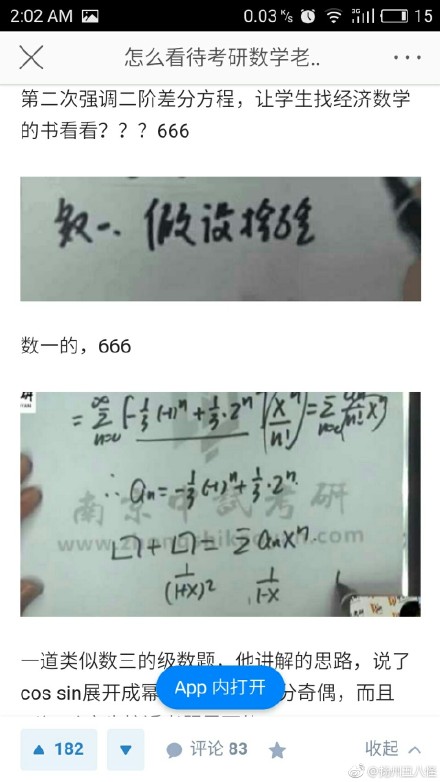 2:02 AM 0.03 K/s 3G 15
怎么看待考研数学老..
第二次强调二阶差分方程，让学生找经济数学
的书看看？？？666
数一. 假设检验
数一的，666
= ∑ [-1/3 (-1)ⁿ + 1/3·2ⁿ] (xⁿ/n!) = ∑ aₙ/n! xⁿ
∴ aₙ = -1/3 (-1)ⁿ + 1/3·2ⁿ.
南京中试考研
[ ] + [ ] = ∑ aₙxⁿ.
1/(1+x)² 1/1-x
一道类似数三的级数题，他讲解的思路，说了
cos sin展开成幂
分奇偶，而且
App 内打开
182 评论 83 收起